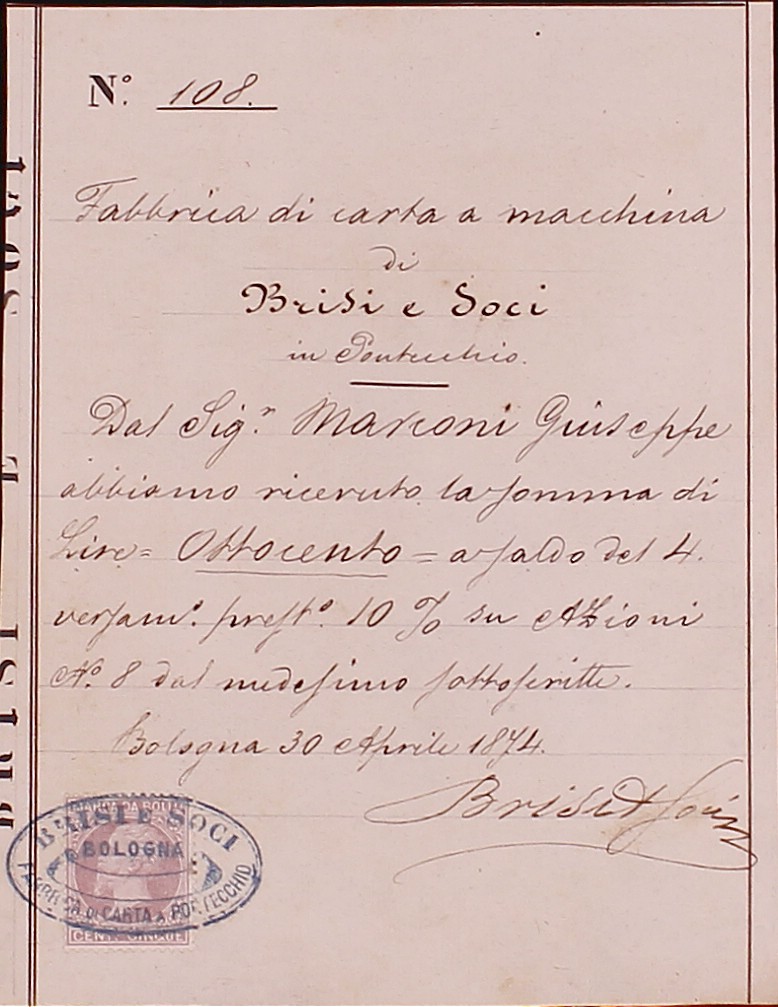 N.º 108.
Fabbrica di carta a macchina
di
Brisi e Soci
in Pontecchio.
Dal Sig.r Marconi Giuseppe
abbiamo ricevuto la somma di
Lire = Ottocento = a saldo del 4.
versam.º prest.º 10 % su Azioni
N.º 8 dal medesimo sottoscritte.
Bologna 30 Aprile 1874.
Brisi & Soci
BRISI E SOCI
BOLOGNA
FABBRICA DI CARTA A PONTECCHIO
MARCA DA BOLLO
CENT. CINQUE
BRISI E SOCI